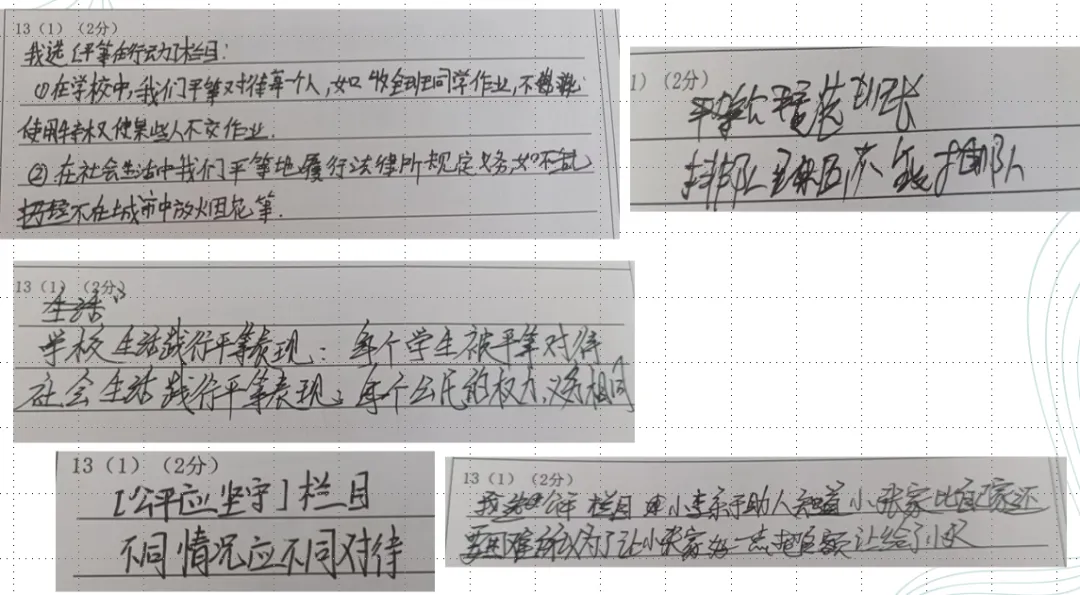 13（1）（2分）
我选［平等在行动］栏目：
①在学校中，我们平等对待每一个人，如收全班同学作业，不
使用特权使某些人不交作业.
②在社会生活中我们平等地履行法律所规定义务，如不乱
不在城市中放烟花等.
1）（2分）
班长
排队 不能插队
13（1）（2分）
生活
学校生活践行平等表现：每个学生被平等对待
社会生活践行平等表现：每个公民的权力、义务相同
13（1）（2分）
［公平应坚守］栏目
不同情况应不同对待
13（1）（2分）
我选 公平 栏目 小李乐于助人 知道 小张家比自家还
要困难 所以为了让小张家好一点把名额让给了小